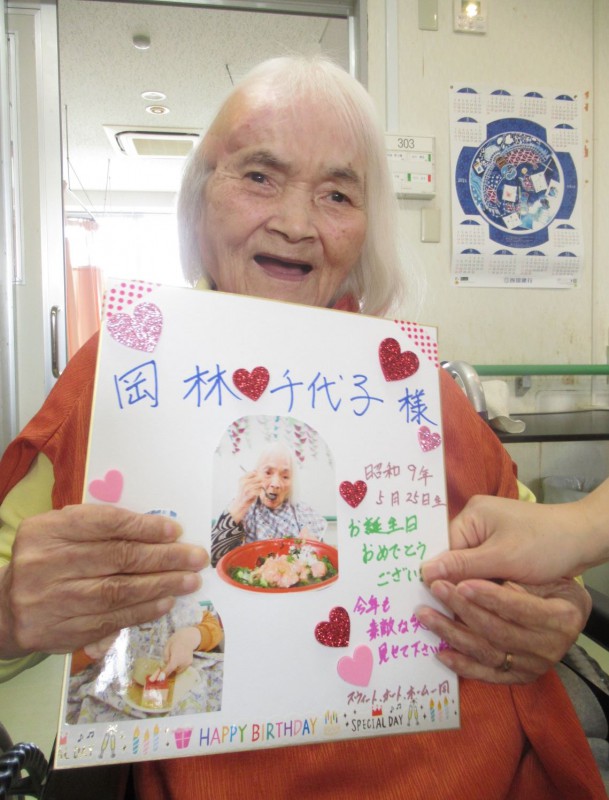 303
岡林♥千代子様
昭和9年
5月25日生
お誕生日
おめでとう
ござい
今年も
素敵な笑
見せて下さいね
スウィート・ホート・ホーム一同
HAPPY BIRTHDAY SPECIAL DAY